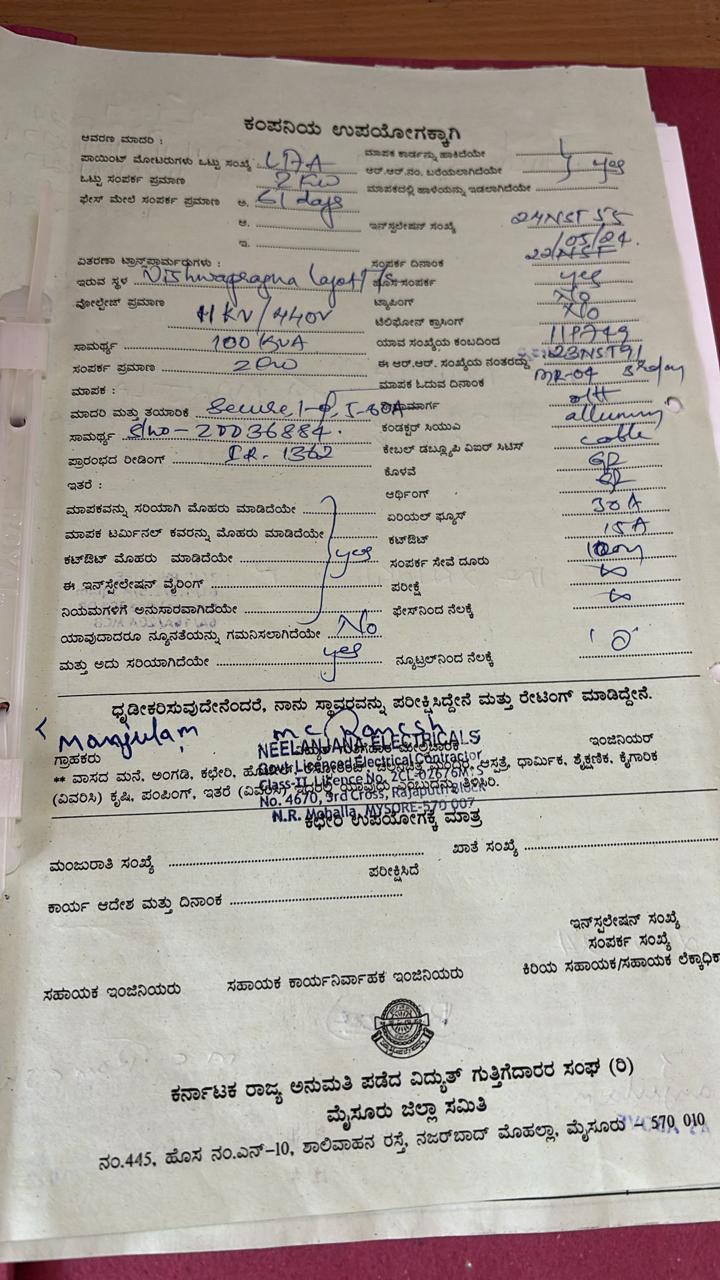 ಕಂಪನಿಯ ಉಪಯೋಗಕ್ಕಾಗಿ
ಆವರಣ ಮಾದರಿ :
ಮಾಪಕ ಕಾರ್ಡನ್ನು ಹಾಕಿದೆಯೇ
ಪಾಯಿಂಟ್ ಮೋಟರುಗಳು ಒಟ್ಟು ಸಂಖ್ಯೆ
ಆರ್.ಆರ್.ನಂ. ಬರೆಯಲಾಗಿದೆಯೇ yes
ಒಟ್ಟು ಸಂಪರ್ಕ ಪ್ರಮಾಣ 2 KW
ಮಾಪಕದಲ್ಲಿ ಹಾಳೆಯನ್ನು ಇಡಲಾಗಿದೆಯೇ
ಫೇಸ್ ಮೇಲೆ ಸಂಪರ್ಕ ಪ್ರಮಾಣ ಅ. 61 days
ಆ.
ಇನ್‌ಸ್ಟಲೇಷನ್ ಸಂಖ್ಯೆ 24NST 55
ಇ.
/05/24.
ವಿತರಣಾ ಟ್ರಾನ್ಸ್‌ಫಾರ್ಮರುಗಳು :
ಸಂಪರ್ಕ ದಿನಾಂಕ 22NST
ಇರುವ ಸ್ಥಳ Vishwapragna layout
ಹೊಸ ಸಂಪರ್ಕ yes
ವೋಲ್ಟೇಜ್ ಪ್ರಮಾಣ 11 KV/440V
ಟ್ಯಾಪಿಂಗ್ No
ಟೆಲಿಫೋನ್ ಕ್ರಾಸಿಂಗ್ No
ಸಾಮರ್ಥ್ಯ 100 KVA
ಯಾವ ಸಂಖ್ಯೆಯ ಕಂಬದಿಂದ 11P749
ಸಂಪರ್ಕ ಪ್ರಮಾಣ 2 KW
ಈ ಆರ್.ಆರ್. ಸಂಖ್ಯೆಯ ನಂತರದ್ದು 23NST91
ಮಾಪಕ :
ಮಾಪಕ ಓದುವ ದಿನಾಂಕ MR-04 3rd day
ಮಾದರಿ ಮತ್ತು ತಯಾರಿಕೆ Secure
o/H
ಸಾಮರ್ಥ್ಯ S/no - 20036884.
ಕಂಡಕ್ಟರ್ ಸಿಯುವಿ
ಪ್ರಾರಂಭದ ರೀಡಿಂಗ್ I.R. 1362
ಕೇಬಲ್ ಡಬ್ಲ್ಯೂಪಿ ವಿಐರ್ ಸಿಟಿಸ್ cable
ಇತರೆ :
ಕೊಳವೆ
ಮಾಪಕವನ್ನು ಸರಿಯಾಗಿ ಮೊಹರು ಮಾಡಿದೆಯೇ
ಆರ್ಥಿಂಗ್
ಮಾಪಕ ಟರ್ಮಿನಲ್ ಕವರನ್ನು ಮೊಹರು ಮಾಡಿದೆಯೇ
ಏರಿಯಲ್ ಫ್ಯೂಸ್ 30A
ಕಟ್‌ಔಟ್ ಮೊಹರು ಮಾಡಿದೆಯೇ yes
ಕಟ್‌ಔಟ್ 15A
ಸಂಪರ್ಕ ಸೇವೆ ದೂರು
ಈ ಇನ್‌ಸ್ಟೇಲೇಷನ್ ವೈರಿಂಗ್
ಪರೀಕ್ಷೆ ∞
ನಿಯಮಗಳಿಗೆ ಅನುಸಾರವಾಗಿದೆಯೇ
ಫೇಸ್‌ನಿಂದ ನೆಲಕ್ಕೆ ∞
ಯಾವುದಾದರೂ ನ್ಯೂನತೆಯನ್ನು ಗಮನಿಸಲಾಗಿದೆಯೇ No
ಮತ್ತು ಅದು ಸರಿಯಾಗಿದೆಯೇ yes
ನ್ಯೂಟ್ರಲ್‌ನಿಂದ ನೆಲಕ್ಕೆ '0'
ಧೃಡೀಕರಿಸುವುದೇನೆಂದರೆ, ನಾನು ಸ್ಥಾವರವನ್ನು ಪರೀಕ್ಷಿಸಿದ್ದೇನೆ ಮತ್ತು ರೇಟಿಂಗ್ ಮಾಡಿದ್ದೇನೆ.
Manjulam
MC Ramesh
ಗ್ರಾಹಕರು
ಇಂಜಿನಿಯರ್
NEELANJANA ELECTRICALS
Govt Licenced Electrical Contractor
Class-II, Licence No. 2CL-02676MYS
No. 4670, 3rd Cross, Rajaputh Block
N.R. Mohalla, MYSORE-570 007
** ವಾಸದ ಮನೆ, ಅಂಗಡಿ, ಕಛೇರಿ, ಆಸ್ಪತ್ರೆ, ಧಾರ್ಮಿಕ, ಶೈಕ್ಷಣಿಕ, ಕೈಗಾರಿಕ
(ವಿವರಿಸಿ) ಕೃಷಿ, ಪಂಪಿಂಗ್, ಇತರೆ (ವಿವರಿಸಿ) ತಿಳಿಸಿರಿ.
ಕಛೇರಿ ಉಪಯೋಗಕ್ಕೆ ಮಾತ್ರ
ಮಂಜುರಾತಿ ಸಂಖ್ಯೆ
ಖಾತೆ ಸಂಖ್ಯೆ
ಪರೀಕ್ಷಿಸಿದೆ
ಕಾರ್ಯ ಆದೇಶ ಮತ್ತು ದಿನಾಂಕ
ಇನ್‌ಸ್ಟಲೇಷನ್ ಸಂಖ್ಯೆ
ಸಂಪರ್ಕ ಸಂಖ್ಯೆ
ಸಹಾಯಕ ಇಂಜಿನಿಯರು
ಸಹಾಯಕ ಕಾರ್ಯನಿರ್ವಾಹಕ ಇಂಜಿನಿಯರು
ಕಿರಿಯ ಸಹಾಯಕ/ಸಹಾಯಕ ಲೆಕ್ಕಾಧಿಕಾ
ಕರ್ನಾಟಕ ರಾಜ್ಯ ಅನುಮತಿ ಪಡೆದ ವಿದ್ಯುತ್ ಗುತ್ತಿಗೆದಾರರ ಸಂಘ (ರಿ)
ಮೈಸೂರು ಜಿಲ್ಲಾ ಸಮಿತಿ
ನಂ.445, ಹೊಸ ನಂ.ಎನ್-10, ಶಾಲಿವಾಹನ ರಸ್ತೆ, ನಜರ್‌ಬಾದ್ ಮೊಹಲ್ಲಾ, ಮೈಸೂರು – 570 010